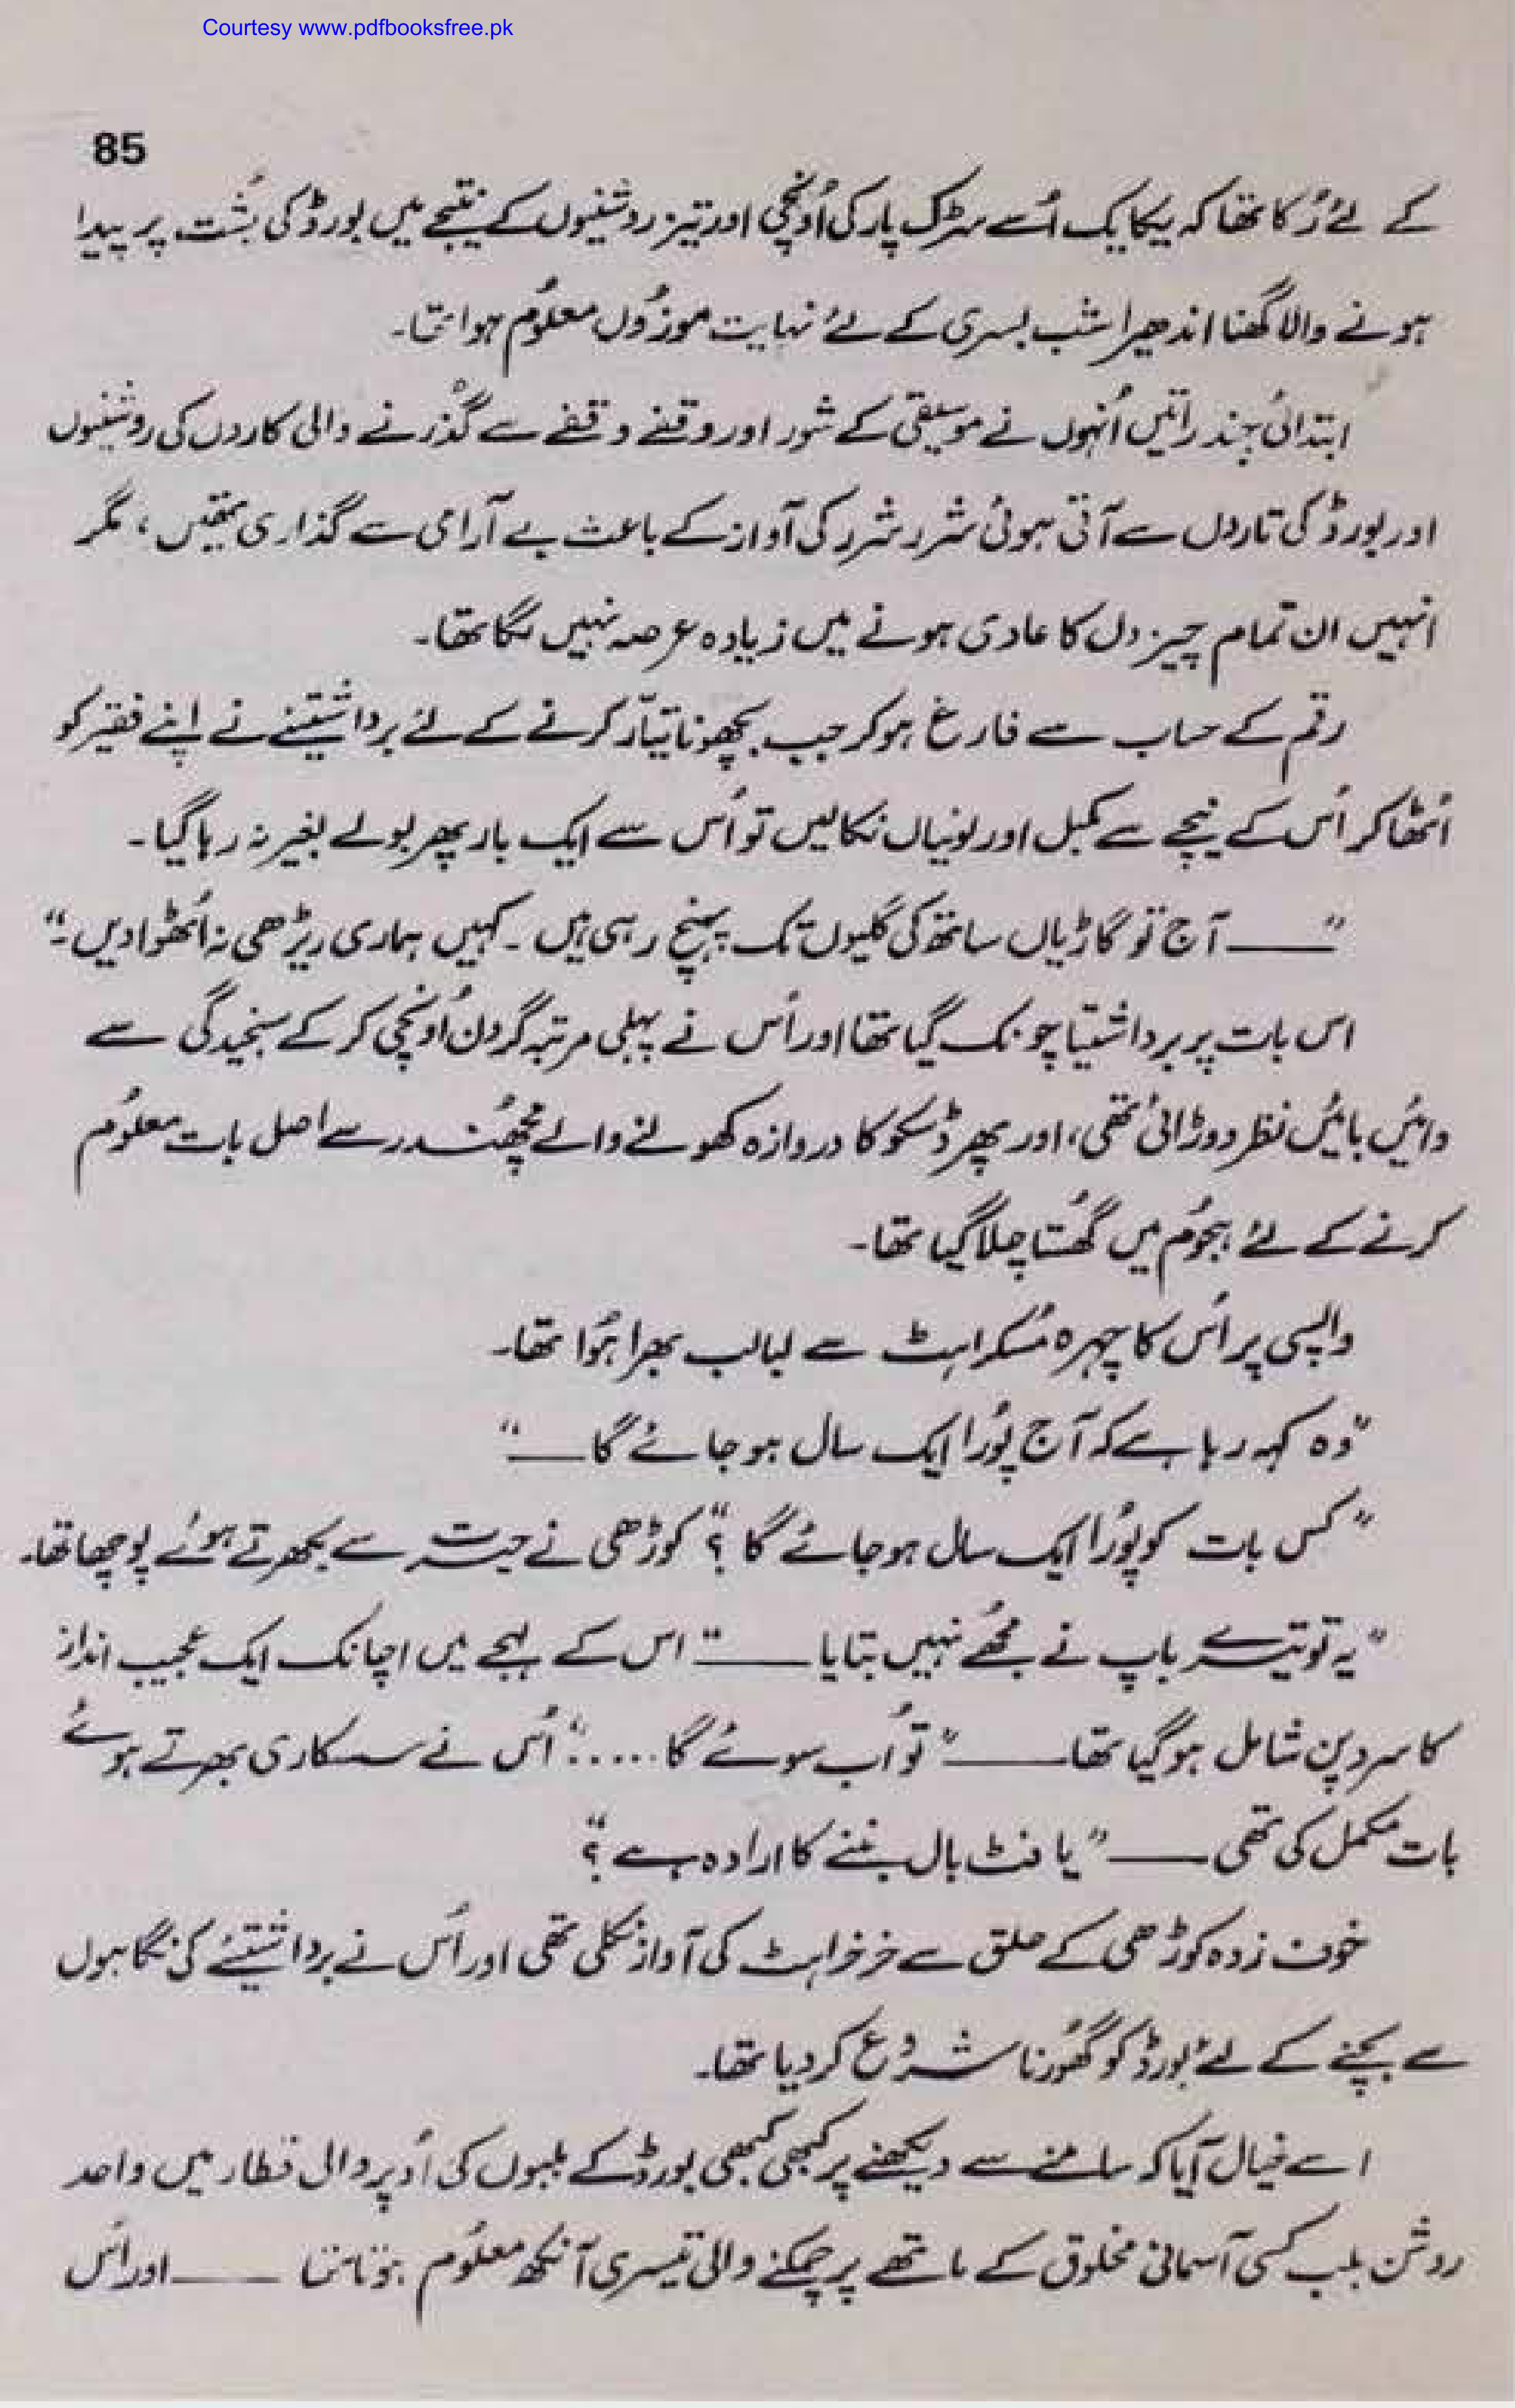 Courtesy www.pdfbooksfree.pk
85
کے لئے رُکا تھا کہ یکایک اُسے سڑک پار کی اُونچی اور تیز روشنیوں کے نتیجے میں بورڈ کی پُشت پر پیدا
ہونے والا گھنا اندھیرا شب بسری کے لئے نہایت موزُوں معلُوم ہوا تھا۔
ابتدائی چند راتیں اُنہوں نے موسیقی کے شور اور وقفے وقفے سے گُذرنے والی کاروں کی روشنیوں
اور بورڈ کی تاروں سے آتی ہوئی شرر شرر کی آواز کے باعث بے آرامی سے گذاری تھیں، مگر
انہیں ان تمام چیزوں کا عادی ہونے میں زیادہ عرصہ نہیں لگا تھا۔
رقم کے حساب سے فارغ ہو کر جب بچھونا تیّار کرنے کے لئے برداشتیئے نے اپنے فقیر کو
اُٹھا کر اُس کے نیچے سے کمبل اور لونیاں نکالیں تو اُس سے ایک بار پھر بولے بغیر نہ رہا گیا۔
"ــــ آج تو گاڑیاں ساتھ کی گلیوں تک پہنچ رہی ہیں۔ کہیں ہماری ریڑھی نہ اُٹھوا دیں۔"
اس بات پر برداشتیا چونک گیا تھا اور اُس نے پہلی مرتبہ گردن اُونچی کر کے سنجیدگی سے
دائیں بائیں نظر دوڑائی تھی، اور پھر ڈسکو کا دروازہ کھولنے والے مچھُندر سے اصل بات معلُوم
کرنے کے لئے ہجُوم میں گھُستا چلا گیا تھا۔
واپسی پر اُس کا چہرہ مُسکراہٹ سے لبالب بھرا ہُوا تھا۔
"وہ کہہ رہا ہے کہ آج پُورا ایک سال ہو جائے گا ــــ"
"کس بات کو پُورا ایک سال ہو جائے گا؟" کوڑھی نے حیرت سے بکھرتے ہوئے پوچھا تھا۔
"یہ تو تیرے باپ نے مجھُے نہیں بتایا ــــ" اس کے لہجے میں اچانک ایک عجیب انداز
کا سرد پن شامل ہو گیا تھا ــــ "تُو اب سوئے گا ....." اُس نے سسکاری بھرتے ہوئے
بات مکمل کی تھی ــــ "یا فٹ بال بننے کا ارادہ ہے؟"
خوف زدہ کوڑھی کے حلق سے خرخراہٹ کی آواز نکلی تھی اور اُس نے برداشتیئے کی نگاہوں
سے بچنے کے لئے بورڈ کو گھُورنا شرُوع کر دیا تھا۔
اسے خیال آیا کہ سامنے سے دیکھنے پر کبھی کبھی بورڈ کے بلبوں کی اُوپر والی قطار میں واحد
روشن بلب کسی آسمانی مخلوق کے ماتھے پر چمکنے والی تیسری آنکھ معلُوم ہوتا تھا ــــ اور اُس